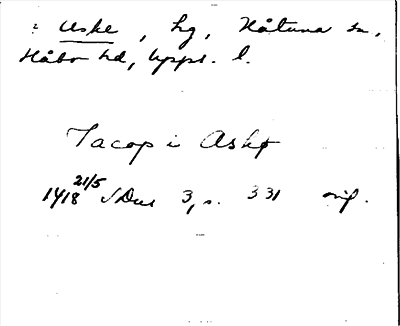 : Aske, hg, Håtuna sn,
Håbo hd, Uppl. l.
Jacop i Askø
1418 21/5 SDns 3, s. 331 orig.